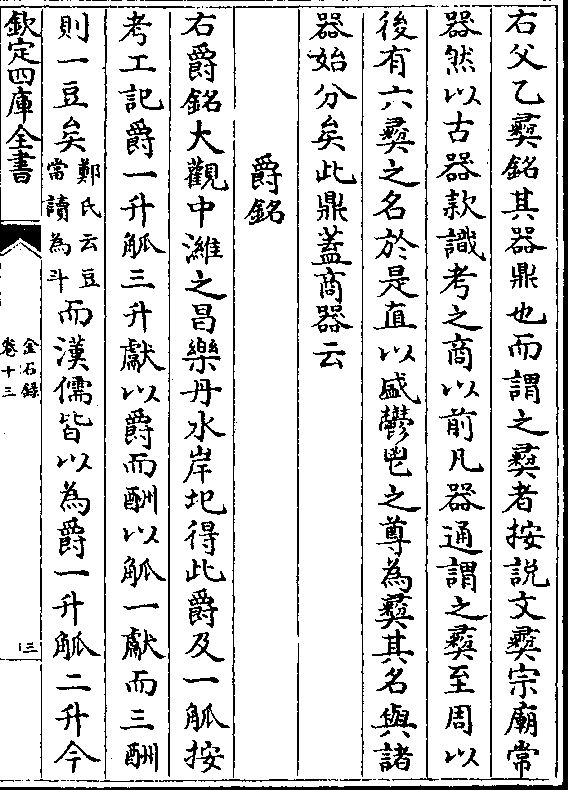 右父乙彞銘其器鼎也而謂之彞者按説文彞宗廟常
器然以古器款識考之商以前凡器通謂之彞至周以
後有六彞之名於是直以盛鬱鬯之尊為彞其名與諸
器始分矣此鼎蓋商器云
爵銘
右爵銘大觀中濰之昌樂丹水岸圮得此爵及一觚按
考工記爵一升觚三升獻以爵而酬以觚一獻而三酬
則一豆矣鄭氏云豆當讀為斗而漢儒皆以為爵一升觚二升今
欽定四庫全書
金石録
卷十三
三